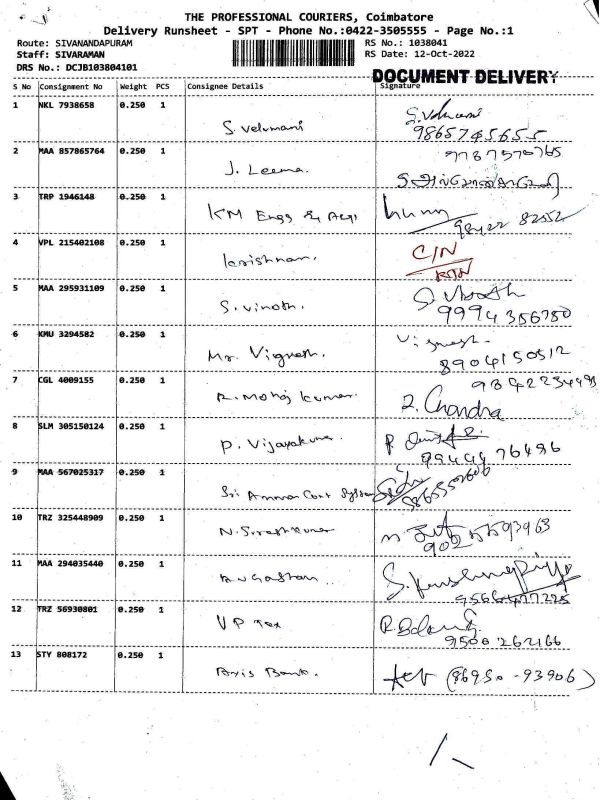 THE PROFESSIONAL COURIERS, Coimbatore
Delivery Runsheet - SPT - Phone No.:0422-3505555 - Page No.:1
Route: SIVANANDAPURAM RS No.: 1038041
Staff: SIVARAMAN RS Date: 12-Oct-2022
DRS No.: DCJB103804101
DOCUMENT DELIVERY
S No Consignment No Weight PCS Consignee Details Signature
1 NKL 7938658 0.250 1
S. Velumani S. Velumani
9865745655
2 MAA 857865764 0.250 1 9787570765
J. Leema.
3 TRP 1946148 0.250 1
KM Engg & Acqi
4 VPL 215402108 0.250 1 C/N
krishnan. RTN
5 MAA 295931109 0.250 1
S. vinoth. S. Vinoth
9994356780
6 KMU 3294582 0.250 1
Mr. Vignesh. Vignesh.
8904150512
7 CGL 4009155 0.250 1 9842234493
R. Mohoj kumar. R. Chandra
8 SLM 305150124 0.250 1
P. Vijayakumar. 9944476486
9 MAA 567025317 0.250 1
Sri Amman Cart System
10 TRZ 325448909 0.250 1
N. Sureshkumar
11 MAA 294035440 0.250 1
9566477225
12 TRZ 56930801 0.250 1
VP Tex
9500262166
13 STY 808172 0.250 1
Axis Bank. (86950-93906)